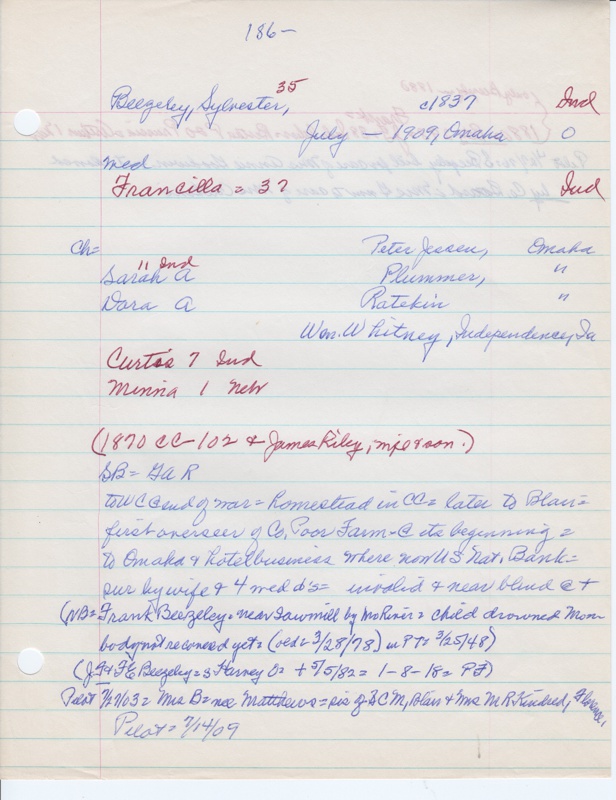 186-
Beezeley, Sylvester, 35 c1837 Ind
July - 1909, Omaha O
med
Francilla = 32 Ind
Ch= Peter Jessen, Omaha
Sarah A 11 Ind Plummer, "
Dora A Ratekin "
Wm. Whitney, Independence, Ia
Curtis 7 Ind
Minna 1 Neb
(1870 CC-102 & James Riley, &son.)
SB = GAR
to WC end of war = homestead in CC = later to Blair =
first overseer of Co. Poor Farm - @ its beginning =
to Omaha & hotel business where now US Nat. Bank =
sur by wife & 4 med d's = invalid & near blind @ +
(NB = Frank Beezeley = near sawmill by Mo River = child drowned Mon
body not recovered yet = (ved = 3/28/78) in PT = 3/25/48)
(J. F & F E Beezeley = s Harney O = + 5/5/82 = 1-8-18 = PF)
Pilot 7/2/03 = Mrs B = nee Matthews = sis of A C M, Blair & Mrs M R Kindred, Florence,
Pilot = 7/14/09